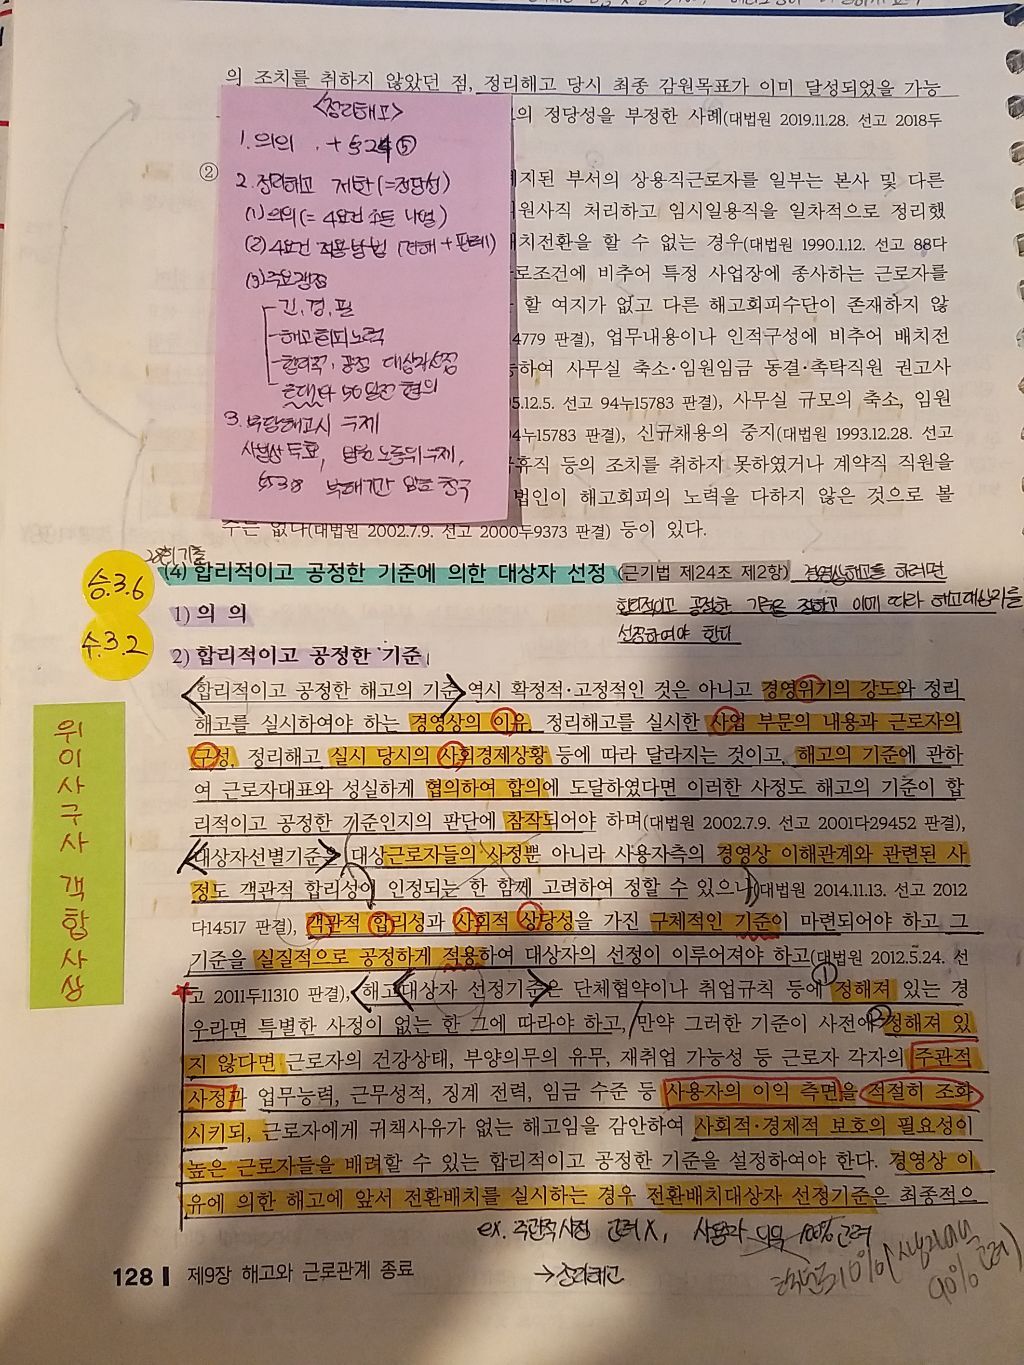 의 조치를 취하지 않았던 점, 정리해고 당시 최종 감원목표가 이미 달성되었을 가능
의 정당성을 부정한 사례(대법원 2019.11.28. 선고 2018두
②
지된 부서의 상용직근로자를 일부는 본사 및 다른
원사직 처리하고 임시일용직을 일차적으로 정리했
치전환을 할 수 없는 경우(대법원 1990.1.12. 선고 88다
로조건에 비추어 특정 사업장에 종사하는 근로자를
할 여지가 없고 다른 해고회피수단이 존재하지 않
4779 판결), 업무내용이나 인적구성에 비추어 배치전
하여 사무실 축소·임원임금 동결·촉탁직원 권고사
5.12.5. 선고 94누15783 판결), 사무실 규모의 축소, 임원
94누15783 판결), 신규채용의 중지(대법원 1993.12.28. 선고
휴직 등의 조치를 취하지 못하였거나 계약직 직원을
법인이 해고회피의 노력을 다하지 않은 것으로 볼
수는 없다(대법원 2002.7.9. 선고 2000두9373 판결) 등이 있다.
<정리해고>
1. 의의 . + §24 ⑤
2. 정리해고 제한(=정당성)
(1) 의의(= 4요건 조문 나열)
(2) 4요건 적용방법 (견해+판례)
(3) 주요쟁점
긴, 경, 필
해고회피노력
합리적·공정 대상자선정
근대 50일전 협의
3. 부당해고시 구제
사법상 무효, 노동위구제,
28회 기출
(4) 합리적이고 공정한 기준에 의한 대상자 선정 (근기법 제24조 제2항) 경영상해고를 하려면
합리적이고 공정한 기준을 정하고 이에 따라 해고대상자를
선정하여야 한다
승.3.6
1) 의 의
수.3.2
2) 합리적이고 공정한 기준
<합리적이고 공정한 해고의 기준> 역시 확정적·고정적인 것은 아니고 경영위기의 강도와 정리
해고를 실시하여야 하는 경영상의 이유, 정리해고를 실시한 사업 부문의 내용과 근로자의
구성, 정리해고 실시 당시의 사회경제상황 등에 따라 달라지는 것이고, 해고의 기준에 관하
여 근로자대표와 성실하게 협의하여 합의에 도달하였다면 이러한 사정도 해고의 기준이 합
리적이고 공정한 기준인지의 판단에 참작되어야 하며(대법원 2002.7.9. 선고 2001다29452 판결),
<대상자선별기준은> 대상근로자들의 사정뿐 아니라 사용자측의 경영상 이해관계와 관련된 사
정도 객관적 합리성이 인정되는 한 함께 고려하여 정할 수 있으나(대법원 2014.11.13. 선고 2012
다14517 판결), 객관적 합리성과 사회적 상당성을 가진 구체적인 기준이 마련되어야 하고 그
기준을 실질적으로 공정하게 적용하여 대상자의 선정이 이루어져야 하고(대법원 2012.5.24. 선
고 2011두11310 판결), <해고<대상자 선정기준>은 단체협약이나 취업규칙 등에 ①정해져 있는 경
우라면 특별한 사정이 없는 한 그에 따라야 하고, / 만약 그러한 기준이 사전에 ②정해져 있
지 않다면 근로자의 건강상태, 부양의무의 유무, 재취업 가능성 등 근로자 각자의 주관적
사정과 업무능력, 근무성적, 징계 전력, 임금 수준 등 사용자의 이익 측면을 적절히 조화
시키되, 근로자에게 귀책사유가 없는 해고임을 감안하여 사회적·경제적 보호의 필요성이
높은 근로자들을 배려할 수 있는 합리적이고 공정한 기준을 설정하여야 한다. 경영상 이
유에 의한 해고에 앞서 전환배치를 실시하는 경우 전환배치대상자 선정기준은 최종적으
위
이
사
구
사
객
합
사
상
ex. 주관적사정 고려X, 사용자 이익 100% 고려
→ 정리해고
10% (사용자이익 90% 고려)
128 제9장 해고와 근로관계 종료